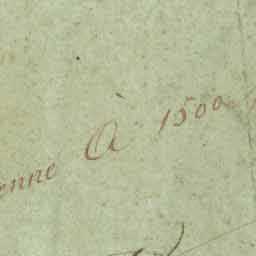 enne à 1500